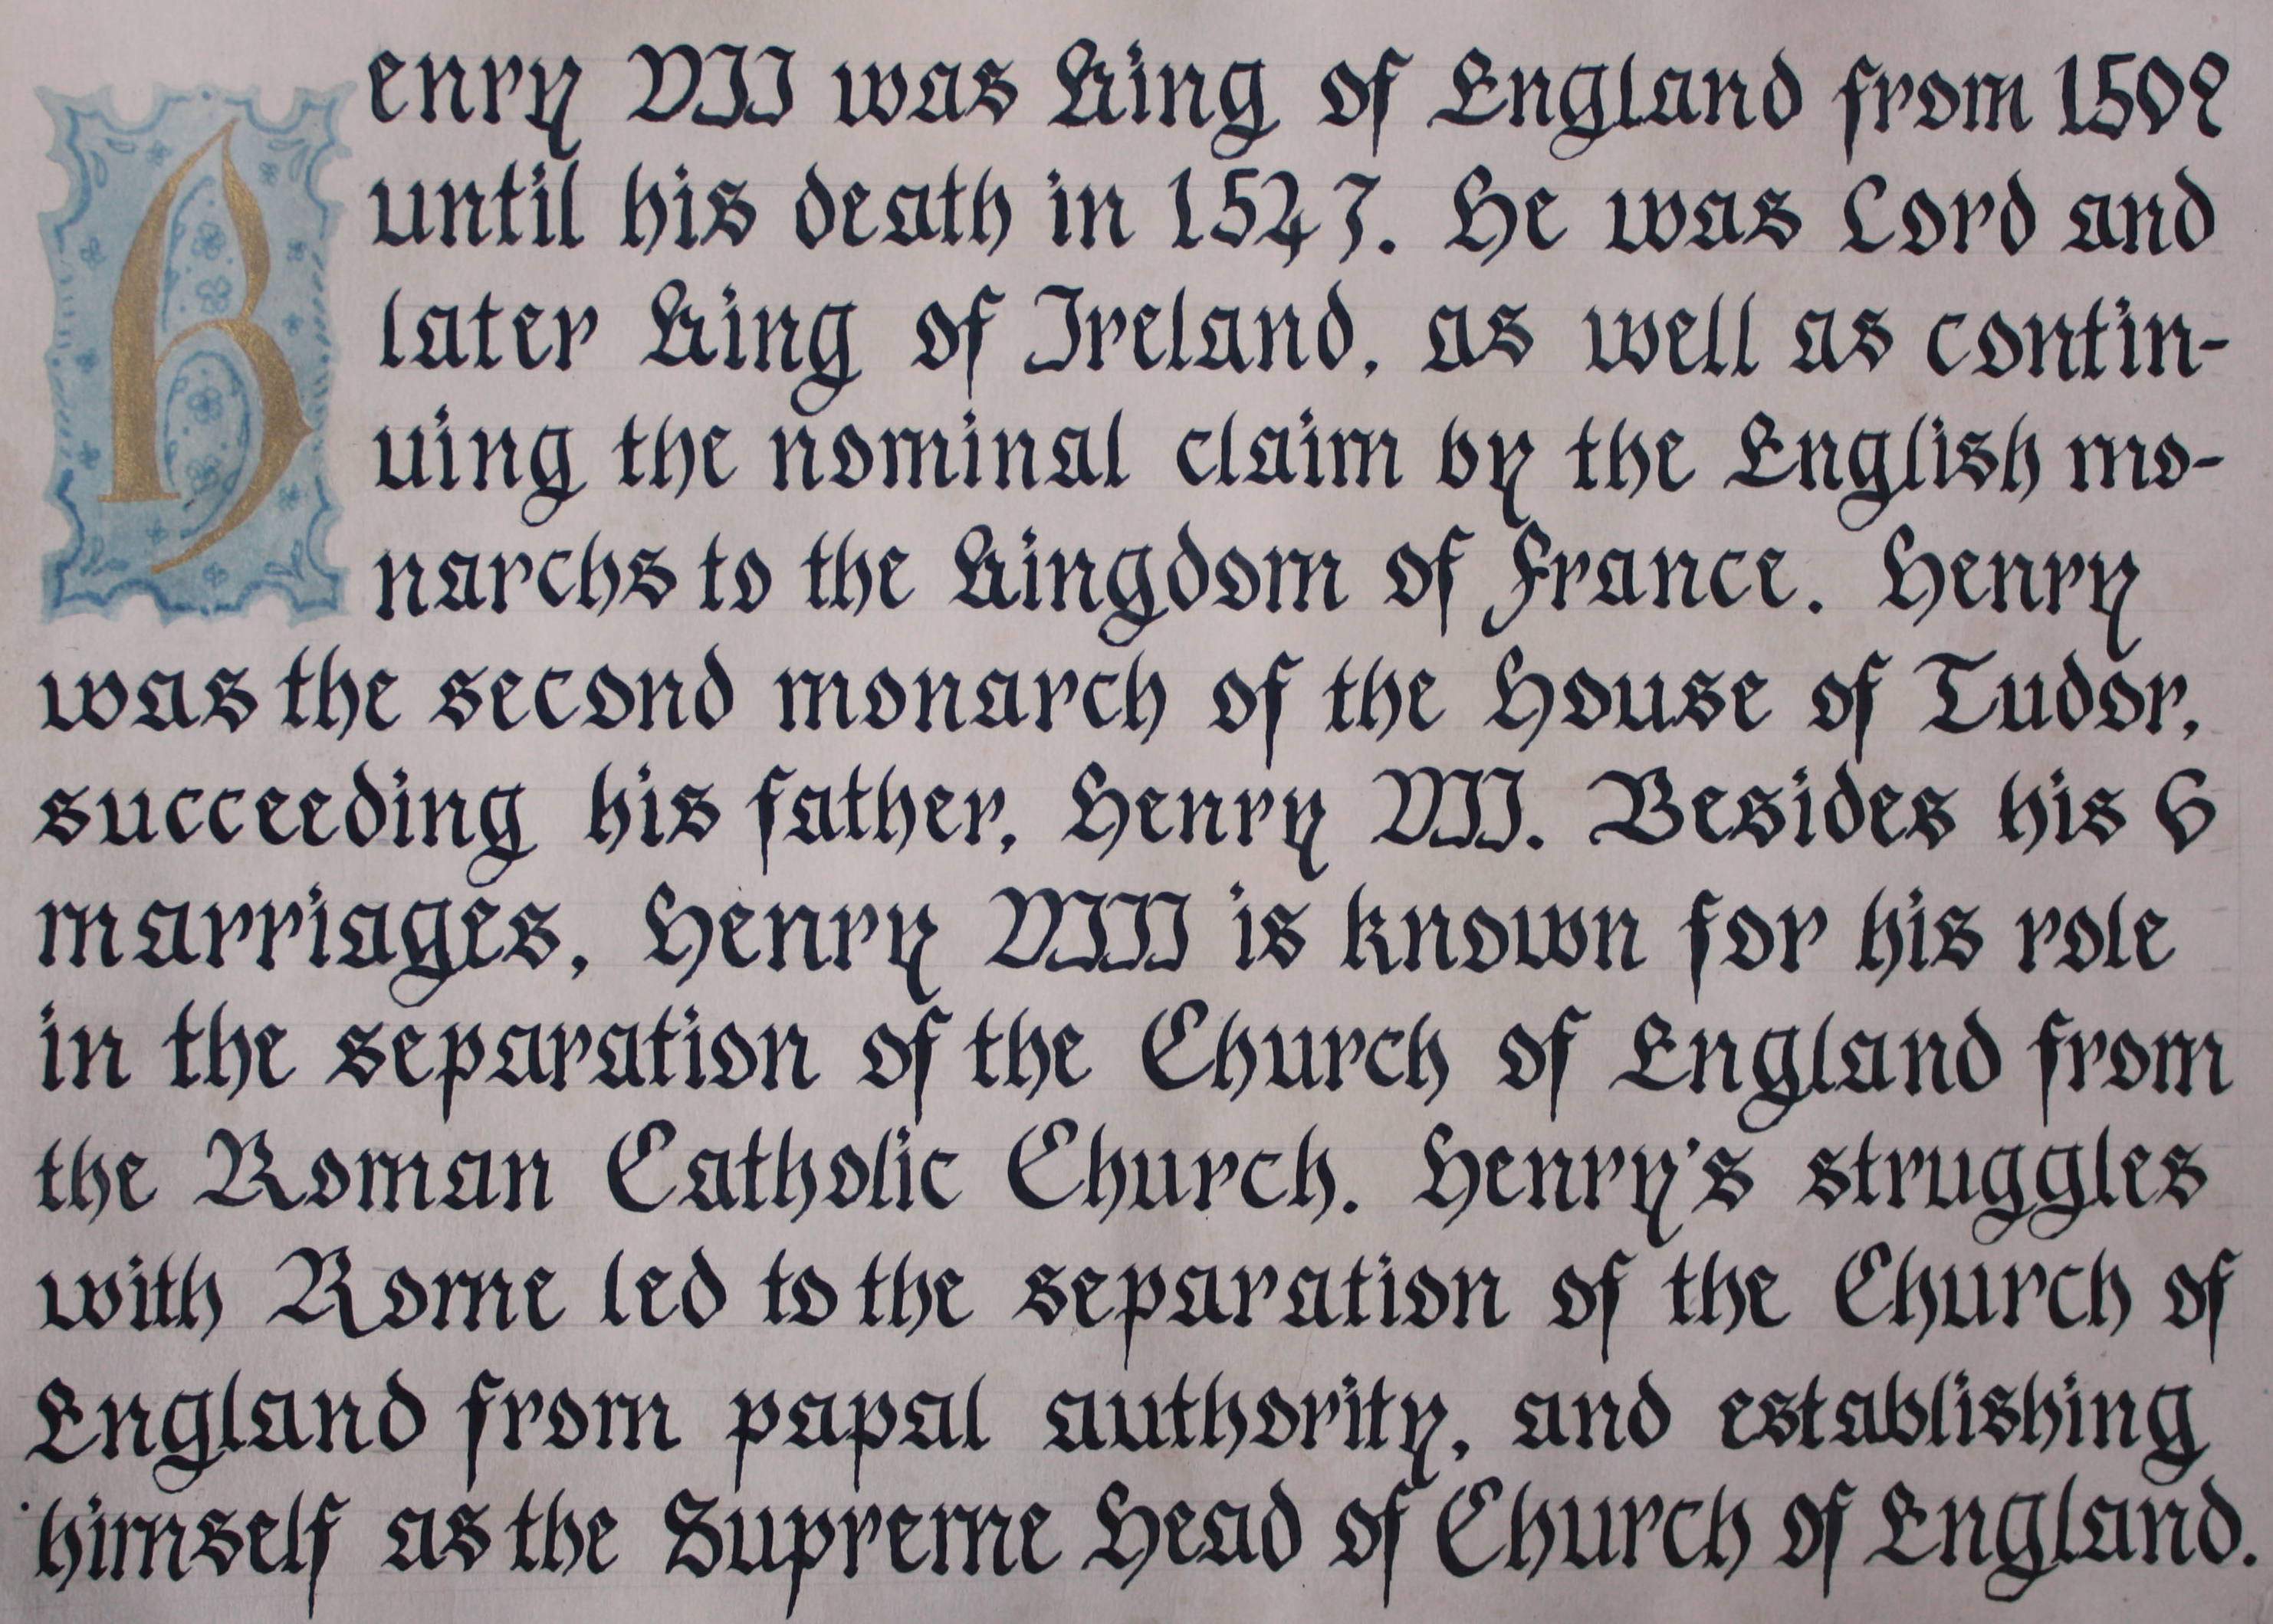 Henry VII was King of England from 1509
until his death in 1547. He was Lord and
later King of Ireland, as well as contin-
uing the nominal claim by the English mo-
narchs to the Kingdom of France. Henry
was the second monarch of the House of Tudor,
succeeding his father, Henry VII. Besides his 6
marriages, Henry VIII is known for his role
in the separation of the Church of England from
the Roman Catholic Church. Henry's struggles
with Rome led to the separation of the Church of
England from papal authority, and establishing
himself as the Supreme Head of Church of England.